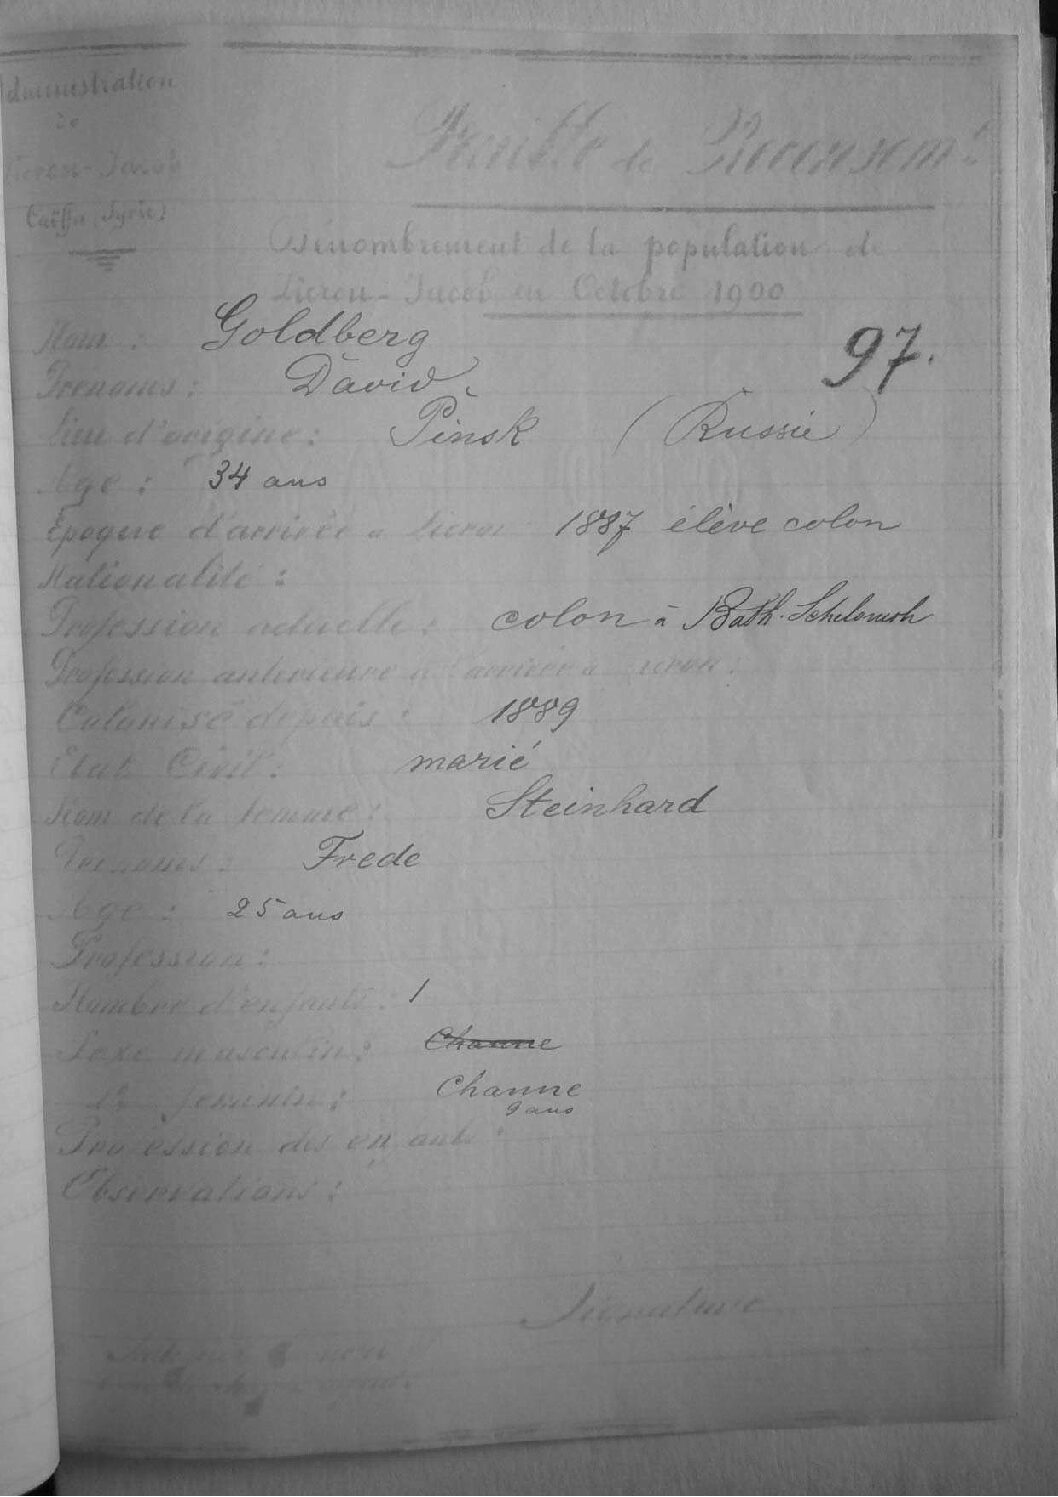 Administration
de
Zicron-Jacob
Caïffa (Syrie)
Feuille de Recensemt
Dénombrement de la population de
Zicron-Jacob en Octobre 1900
97.
Nom : Goldberg
Prenoms : David.
Lieu d'origine : Pinsk (Russie)
Age : 34 ans
Epoque d'arrivée a Zicron 1887 élève colon
Nationalité :
Profession actuelle : colon à Bath-Schelomoh
Profession anterieure a l'arrivée a Zicron :
Colonisé depuis : 1889
Etat Civil : marié
Nom de la femme : Steinhard
Prenoms : Frede
Age : 25 ans
Profession :
Nombre d'enfants : 1
Sexe masculin : Channe
feminin : Channe
9 ans
Profession des enfants :
Observations :
Signature